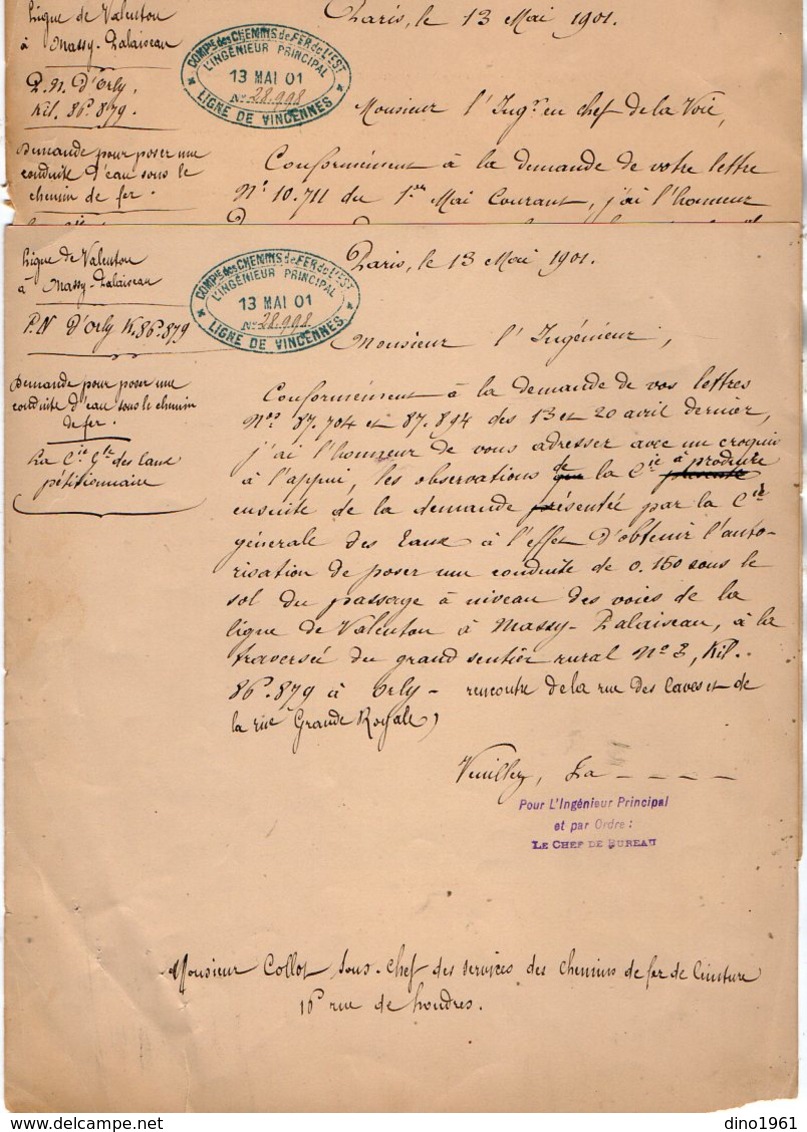 Ligne de Valenton
à Massy-Palaiseau
P.N. d'Orly.
Kil. 86ᵖ.879.
Demande pour poser une
conduite d'eau sous le
chemin de fer.
COMPIE des CHEMINS de FER de L'EST
L'INGÉNIEUR PRINCIPAL
13 MAI 01
No 28.998
LIGNE DE VINCENNES
Paris, le 13 Mai 1901.
Monsieur l'Ingʳ en chef de la Voie,
Conformément à la demande de votre lettre
Nº 10.711 du 1ᵉʳ Mai Courant, j'ai l'honneur
Ligne de Valenton
à Massy-Palaiseau
P.N d'Orly K.86ᵖ.879
Demande pour poser une
conduite d'eau sous le chemin
de fer.
La Cⁱᵉ Gˡᵉ des Eaux
pétitionnaire
COMPIE des CHEMINS de FER de L'EST
L'INGÉNIEUR PRINCIPAL
13 MAI 01
No 28.998
LIGNE DE VINCENNES
Paris, le 13 Mai 1901.
Monsieur l'Ingénieur,
Conformément à la demande de vos lettres
Nᵒˢ 87.704 et 87.894 des 13 et 20 avril dernier,
j'ai l'honneur de vous adresser avec un croquis
à l'appui, les observations de la Cⁱᵉ à produire
ensuite de la demande présentée par la Cⁱᵉ
générale des Eaux à l'effet d'obtenir l'auto-
risation de poser une conduite de 0.150 sous le
sol du passage à niveau des voies de la
ligne de Valenton à Massy-Palaiseau, à la
traversée du grand sentier rural Nº 3, Kil.
86ᵖ.879 à Orly - rencontre de la rue des Caves et de
la rue Grande Royale)
Veuillez, La - - - -
Pour L'Ingénieur Principal
et par Ordre :
LE CHEF DE BUREAU
Monsieur Collot, Sous-Chef des services des chemins de fer de Ceinture
rue de Londres.
dino1961